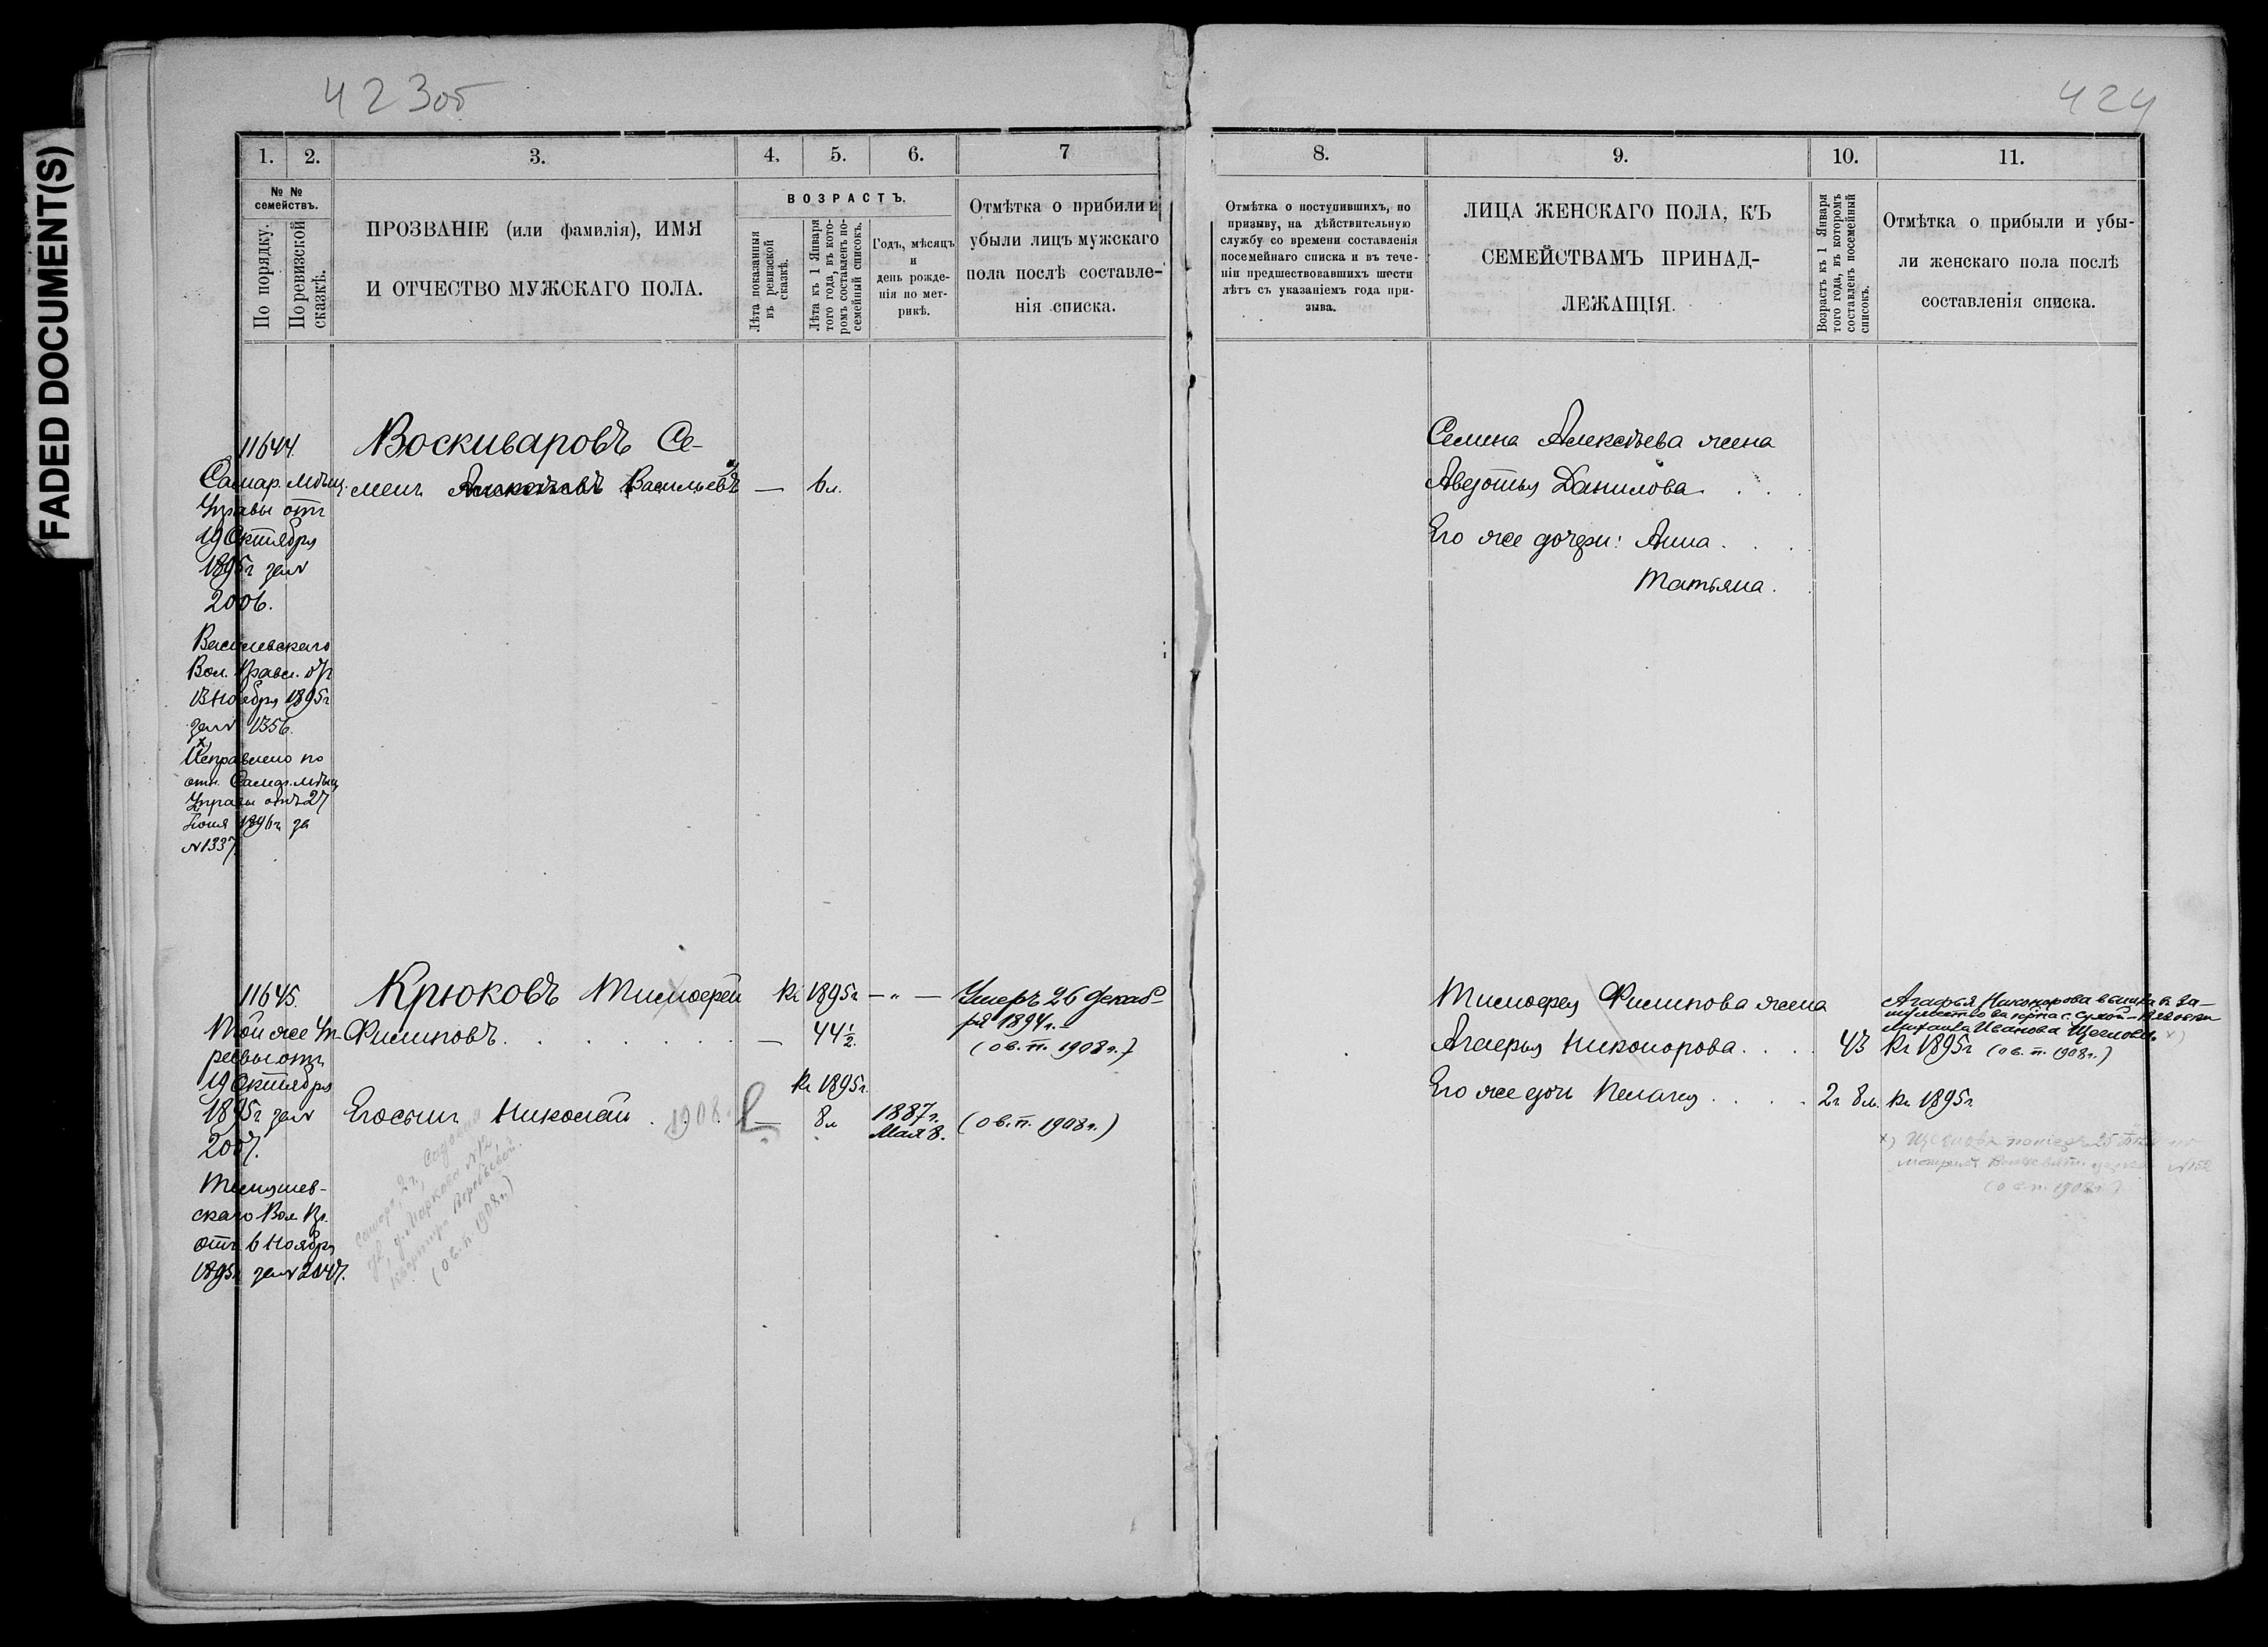 FADED DOCUMENT(S)
423об
1. 2. 3. 4. 5. 6. 7
№ № семействъ.
По порядку.
По ревизской сказкѣ.
ПРОЗВАНІЕ (или фамилія), ИМЯ
И ОТЧЕСТВО МУЖСКАГО ПОЛА.
ВОЗРАСТЪ.
Лѣта показанныя
въ ревизской
сказкѣ.
Лѣта къ 1 Января
того года, въ кото-
ромъ составленъ по-
семейный списокъ.
Годъ, мѣсяцъ
и
день рожде-
нія по мет-
рикѣ.
Отмѣтка о прибыли и
убыли лицъ мужскаго
пола послѣ составле-
нія списка.
11644.
Самар. мѣщ.
Управы отъ
19 Октября
1895г за №
2006.
Василевскаго
Вол. Правл. отъ
13 Ноября 1895г
за № 1356.
х)
Исправлено по
отн. Самар. мѣщ.
Управы отъ 27
Іюня 1896г за
№ 1337.
Воскиваровъ Се-
менъ Васильевъ — 6 л.
11645.
Той же Уп-
равы отъ
19 Октября
1895г за №
2007.
скаго Вол. Пр.
отъ 6 Ноября
1895г за № 2047.
Крюковъ Тимофей Къ 1895г — " — Умеръ 26 декаб-
Филиповъ . . . — 44½ ря 1894г. —
(о в. п. 1908г.)
Къ 1895г.
Его сынъ Николай . 1908. — 8 л 1887г. Мая 8. (о в. п. 1908г.)
Самара, 2ч, Садовая
ул, д. Маркова № 12,
квартира Воробьевой.
(о в. п. 1908г.)
424
8. 9. 10. 11.
Отмѣтка о поступившихъ, по
призыву, на дѣйствительную
службу со времени составленія
посемейнаго списка и въ тече-
ніи предшествовавшихъ шести
лѣтъ съ указаніемъ года при-
зыва.
ЛИЦА ЖЕНСКАГО ПОЛА, КЪ
СЕМЕЙСТВАМЪ ПРИНАД-
ЛЕЖАЩІЯ.
Возрастъ къ 1 Января
того года, въ которомъ
составленъ посемейный
списокъ.
Отмѣтка о прибыли и убы-
ли женскаго пола послѣ
составленія списка.
Семена Алексѣева жена
Авдотья Данилова . . .
Его же дочери: Анна . . .
Татьяна .
Тимофея Филипова жена
Агафья Никонорова . . . 43 Къ 1895г (о в. п. 1908г.)
Агафья Никонорова вышла въ за-
мужество за кр-на с. Сухой-Вязовки
Михаила Иванова Щеглова. х)
Его же дочь Пелагея . . . 2г 8м. Къ 1895г
(о в. п. 1908г.)